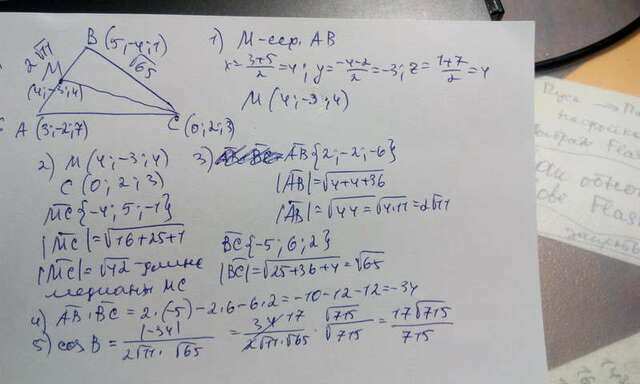 B (5;-4;1)
2√11
√65
M
(4;-3;4)
A (3;-2;7)
C (0;2;3)
1) M-сер. AB
x=3+5/2=4; y=-4-2/2=-3; z=1+7/2=4
M (4;-3;4)
2) M (4;-3;4)
C (0; 2; 3)
MC {-4; 5; -1}
|MC|=√16+25+1
|MC|=√42 -длина
медианы MC
3) AB {2; -2; -6}
|AB|=√4+4+36
|AB|=√44=√4·11=2√11
BC {-5; 6; 2}
|BC|=√25+36+4=√65
4) AB·BC = 2·(-5)-2·6-6·2=-10-12-12=-34
5) cos B = |-34|/2√11·√65 = 34 17/2√11·√65 · √715/√715 = 17√715/715